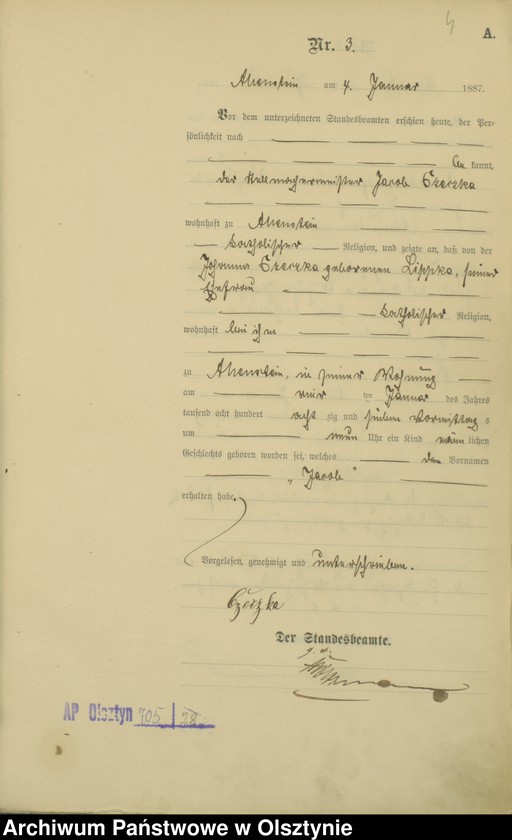 4 A.
Nr. 3.
Allenstein am 4. Januar 1887.
Vor dem unterzeichneten Standesbeamten erschien heute, der Per=
sönlichkeit nach
be kannt,
der Stellmachermeister Jacob
wohnhaft zu Allenstein
katholischer Religion, und zeigte an, daß von der
Johanna geborenen Lippka, seiner
Ehefrau
katholischer Religion,
wohnhaft bei ihm
zu Allenstein, in seiner Wohnung
am vier ten Januar des Jahres
tausend acht hundert acht zig und sieben Vormittag s
um neun Uhr ein Kind männ lichen
Geschlechts geboren worden sei, welches den Vornamen
„Jacob"
erhalten habe.
Vorgelesen, genehmigt und unterschrieben.
Der Standesbeamte.
AP Olsztyn 705 | 28
Archiwum Państwowe w Olsztynie